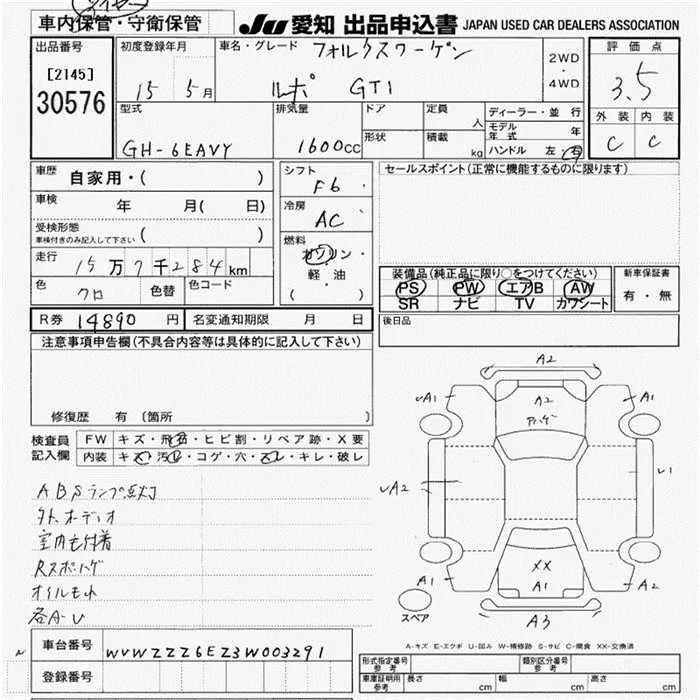 車内保管・守衛保管
JU 愛知 出品申込書 JAPAN USED CAR DEALERS ASSOCIATION
出品番号 初度登録年月 車名・グレード フォルクスワーゲン 2WD・4WD 評価点
[2145]
30576 15 5月 ルポ GTI 3.5
型式 排気量 ドア 定員 人 ディーラー・並行 外装 内装
モデル年式 年
GH-6EAVY 1600cc 形状 積載 kg ハンドル 左・右 C C
車歴 自家用・( ) シフト F6 セールスポイント(正常に機能するものに限ります)
車検 年 月( 日) 冷房 AC
受検形態 ( )
車検付きのみ記入して下さい
走行 15万7千284km 燃料 ガソリン・軽油 ( )
装備品(純正品に限り○をつけてください) 新車保証書
色 クロ 色替 色コード PS PW エアB AW 有・無
SR ナビ TV カワシート
R券 14890円 名変通知期限 月 日 後日品
注意事項申告欄(不具合内容等は具体的に記入して下さい)
修復歴 有 [箇所 ]
検査員記入欄 FW キズ・飛石・ヒビ割・リペア跡・X要
内装 キズ・汚レ・コゲ・穴・スレ・キレ・破レ
ABSランプ点灯
外.オーディオ
Rスポ.ハゲ
各A-U
A2
A1 A2 A1
A2 U1
XX
A1 A1 A2
A3
スペア
A-キズ E-エクボ U-凹み W-補修跡 S-サビ C-腐食 XX-交換済
車台番号 WVWZZZ6EZ3W003291
登録番号
形式指定番号 参考 類別区分番号 参考
車庫証明用 参考 長さ cm 幅 cm 高さ cm